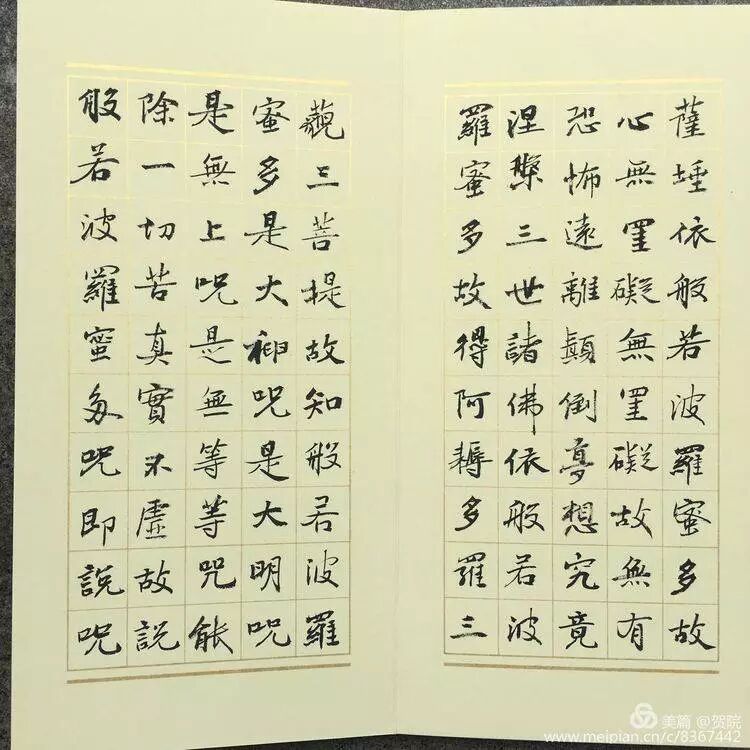 薩埵依般若波羅蜜多故
心無罣礙無罣礙故無有
恐怖遠離顛倒夢想究竟
涅槃三世諸佛依般若波
羅蜜多故得阿耨多羅三
藐三菩提故知般若波羅
蜜多是大神呪是大明呪
是無上呪是無等等呪能
除一切苦真實不虛故說
般若波羅蜜多呪即說呪
美篇 @贺院
www.meipian.cn/c/8367442